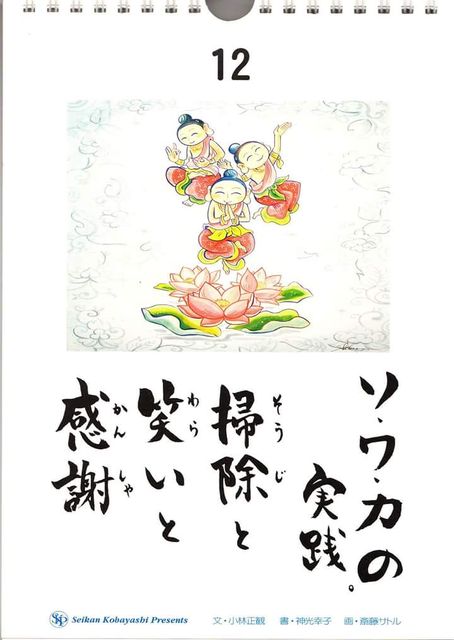 12
ソ・ワ・カの
実践。
掃除と
そうじ
笑いと
わら
感謝
かんしゃ
Seikan Kobayashi Presents
文・小林正観 書・神光幸子 画・斎藤サトル